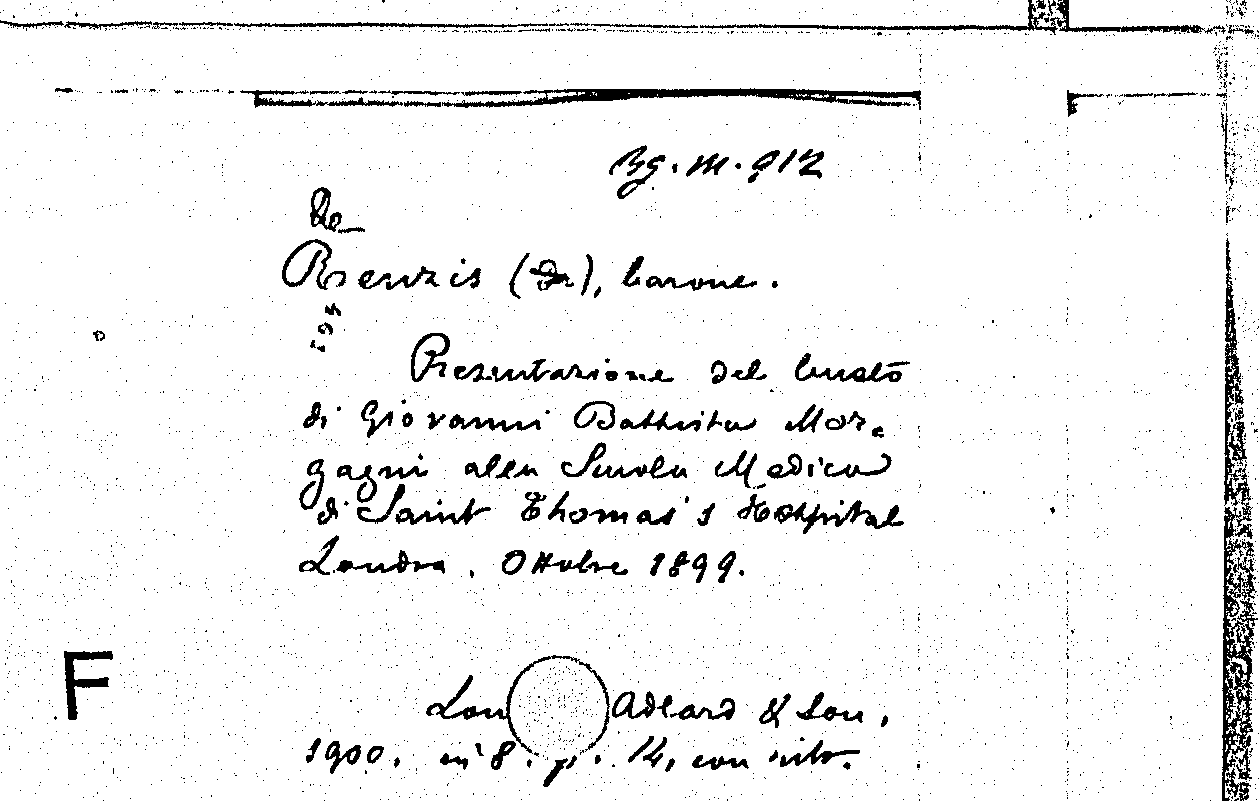 Bg. M. 912
De
Renzis (De), barone.
Presentazione del busto
di Giovanni Battista Mor=
gagni alla Scuola Medica
di Saint Thomas's Hospital
Londra. Ottobre 1899.
F
Lon Adlard & Son,
1900. in 8. p. 14, con ritr.